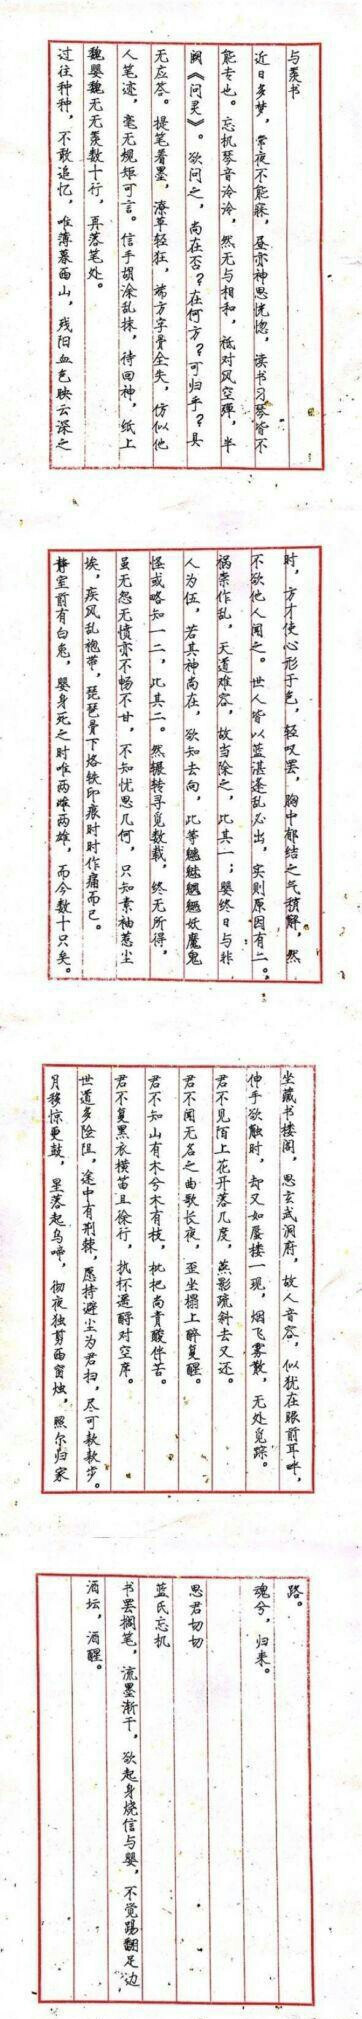 与羡书
近日多梦，常夜不能寐，昼亦神思恍惚，读书习琴皆不
能专也。忘机琴音泠泠，然无与相和，祗对风空弹，半
阕《问灵》。欲问之，尚在否？在何方？可归乎？具
无应答。提笔着墨，潦草轻狂，端方字骨全失，仿似他
人笔迹，毫无规矩可言。信手损涂乱抹，待回神，纸上
魏婴魏无羡数十行，再落笔处。
过往种种，不敢追忆，唯薄暮西山，残阳血色映云深之
时，方才使心形于色，轻叹罢，胸中郁结之气稍解，然
不欲他人闻之。世人皆以蓝湛逢乱必出，实则原因有二。
祸祟作乱，天道难容，故当除之，此其一；婴终日与非
人为伍，若其神尚在，欲知去向，此等魑魅魍魉妖魔鬼
怪或略知一二，此其二。然辗转寻觅数载，终无所得，
虽无怨无愤亦不畅不甘，不知忧思几何，只知素袖惹尘
埃，疾风乱袍带，琵琶骨下烙铁印痕时时作痛而已。
静室前有白兔，婴身死之时唯两雌两雄，而今数十只矣。
坐藏书楼阁，思玄武洞府，故人音容，似犹在眼前耳畔，
伸手欲触时，却又如蜃楼一现，烟飞雾散，无处觅踪。
君不见陌上花开落几度，燕影疏斜去又还。
君不闻无名之曲歌长夜，歪坐榻上醉复醒。
君不知山有木兮木有枝，枇杷尚青酸伴苦。
君不复黑衣横笛且徐行，执杯遥酹对空席。
世道多险阻，途中有荆棘，愿持避尘为君扫，尽可款款步。
月移惊更鼓，星落起乌啼，彻夜独剪西窗烛，照尔归家
路。
魂兮，归来。
思君切切
蓝氏忘机
书罢搁笔，流墨渐干，欲起身烧信与婴，不觉踢翻足边
酒坛，酒醒。